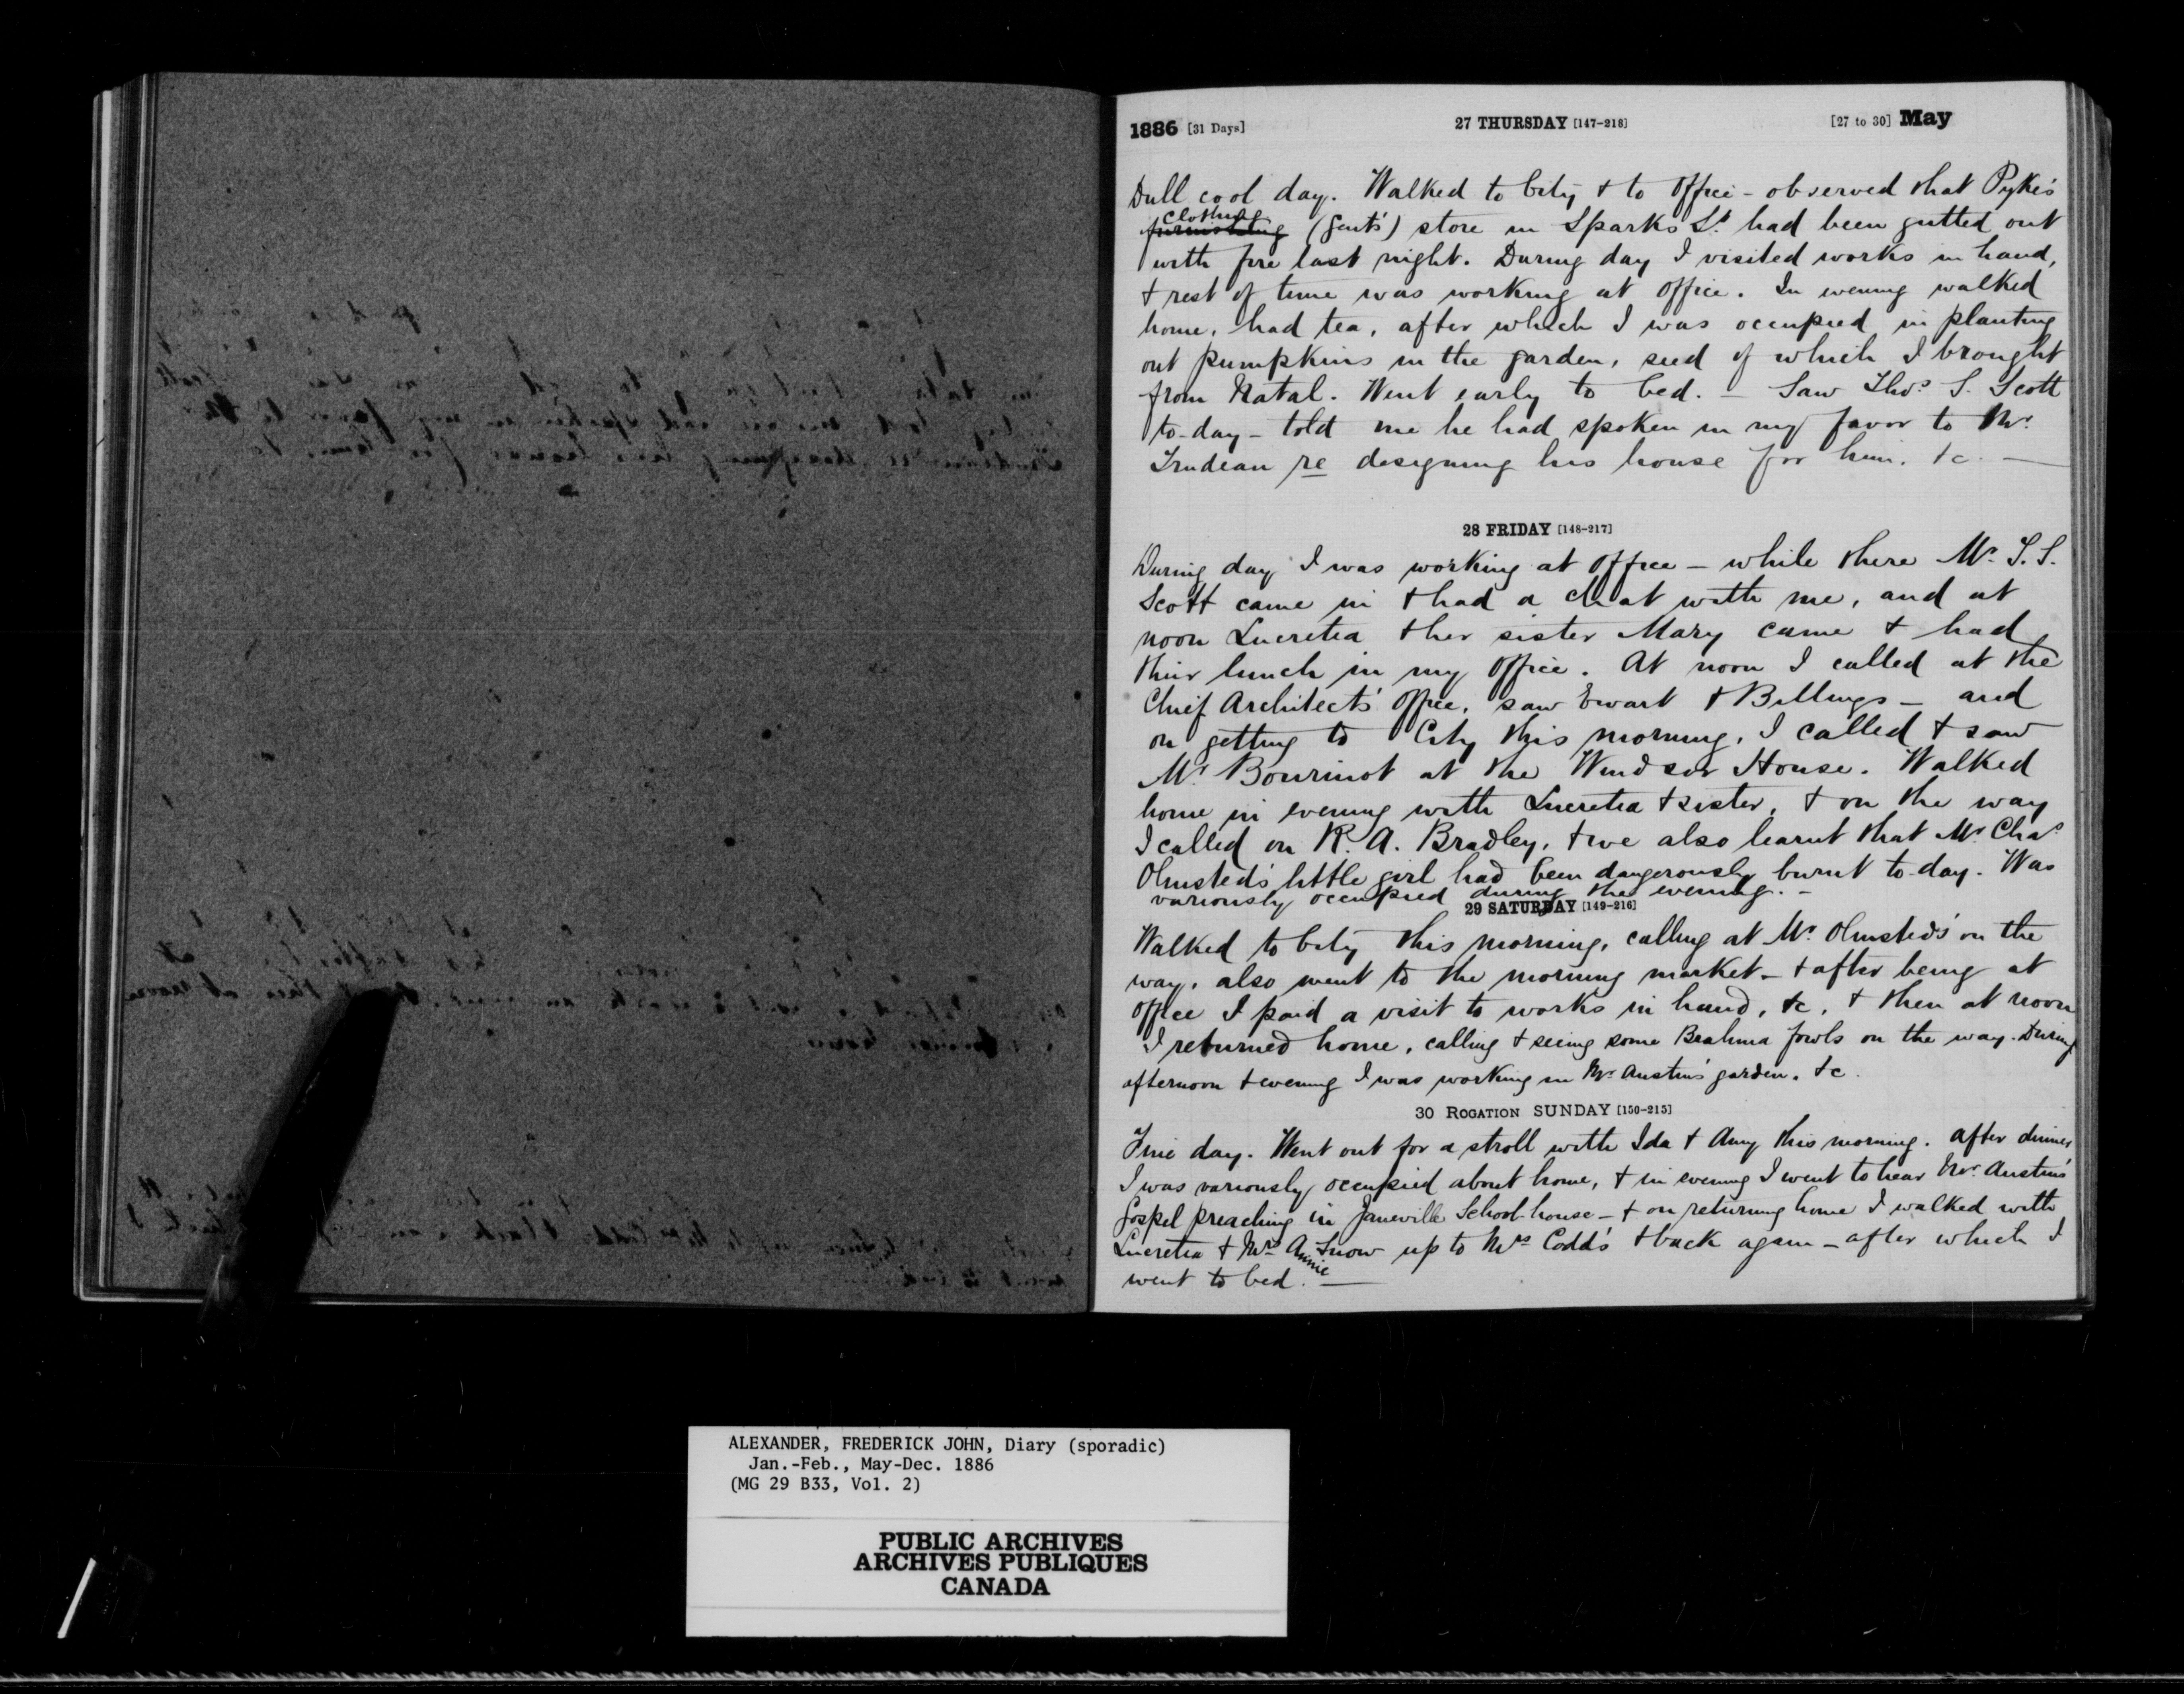 1886 [31 Days] 27 THURSDAY [147-218] [27 to 30] May
Dull cool day. Walked to City & to Office - observed that Pyke's
clothing
furnishing (Gent's) store in Sparks St. had been gutted out
with fire last night. During day I visited works in hand,
& rest of time was working at Office. In evening walked
home, had tea, after which I was occupied in planting
out pumpkins in the garden, seed of which I brought
from Natal. Went early to bed. - Saw Thos. S. Scott
to-day - told me he had spoken in my favor to Mr.
Trudeau re designing his house for him. &c. -
28 FRIDAY [148-217]
During day I was working at Office - while there Mr. T.S.
Scott came in & had a chat with me, and at
noon Lucretia & her sister Mary came & had
their lunch in my Office. At noon I called at the
Chief Architect's Office, saw Ewart & Billings - and
on getting to City this morning, I called & saw
Mr Bourinot at the Windsor House. Walked
home in evening with Lucretia & sister, & on the way
I called on R. A. Bradley, & we also learnt that Mr. Chas
Olmsted's little girl had been dangerously burnt to-day. Was
variously occupied during the evening. -
29 SATURDAY [149-216]
Walked to City this morning, calling at Mr. Olmsted's on the
way, also went to the morning market - & after being at
Office I paid a visit to works in hand, &c, & then at noon
I returned home, calling & seeing some Brahma fowls on the way. During
afternoon & evening I was working in Mr. Austin's garden. &c.
30 ROGATION SUNDAY [150-215]
Fine day. Went out for a stroll with Ida & Amy this morning. After dinner
I was variously occupied about home, & in evening I went to hear Mr. Austin's
Gospel preaching in Janeville School-house - & on returning home I walked with
Lucretia & Mrs Annie Snow up to Mrs Codd's & back again - after which I
went to bed. -
ALEXANDER, FREDERICK JOHN, Diary (sporadic)
Jan.-Feb., May-Dec. 1886
(MG 29 B33, Vol. 2)
PUBLIC ARCHIVES
ARCHIVES PUBLIQUES
CANADA